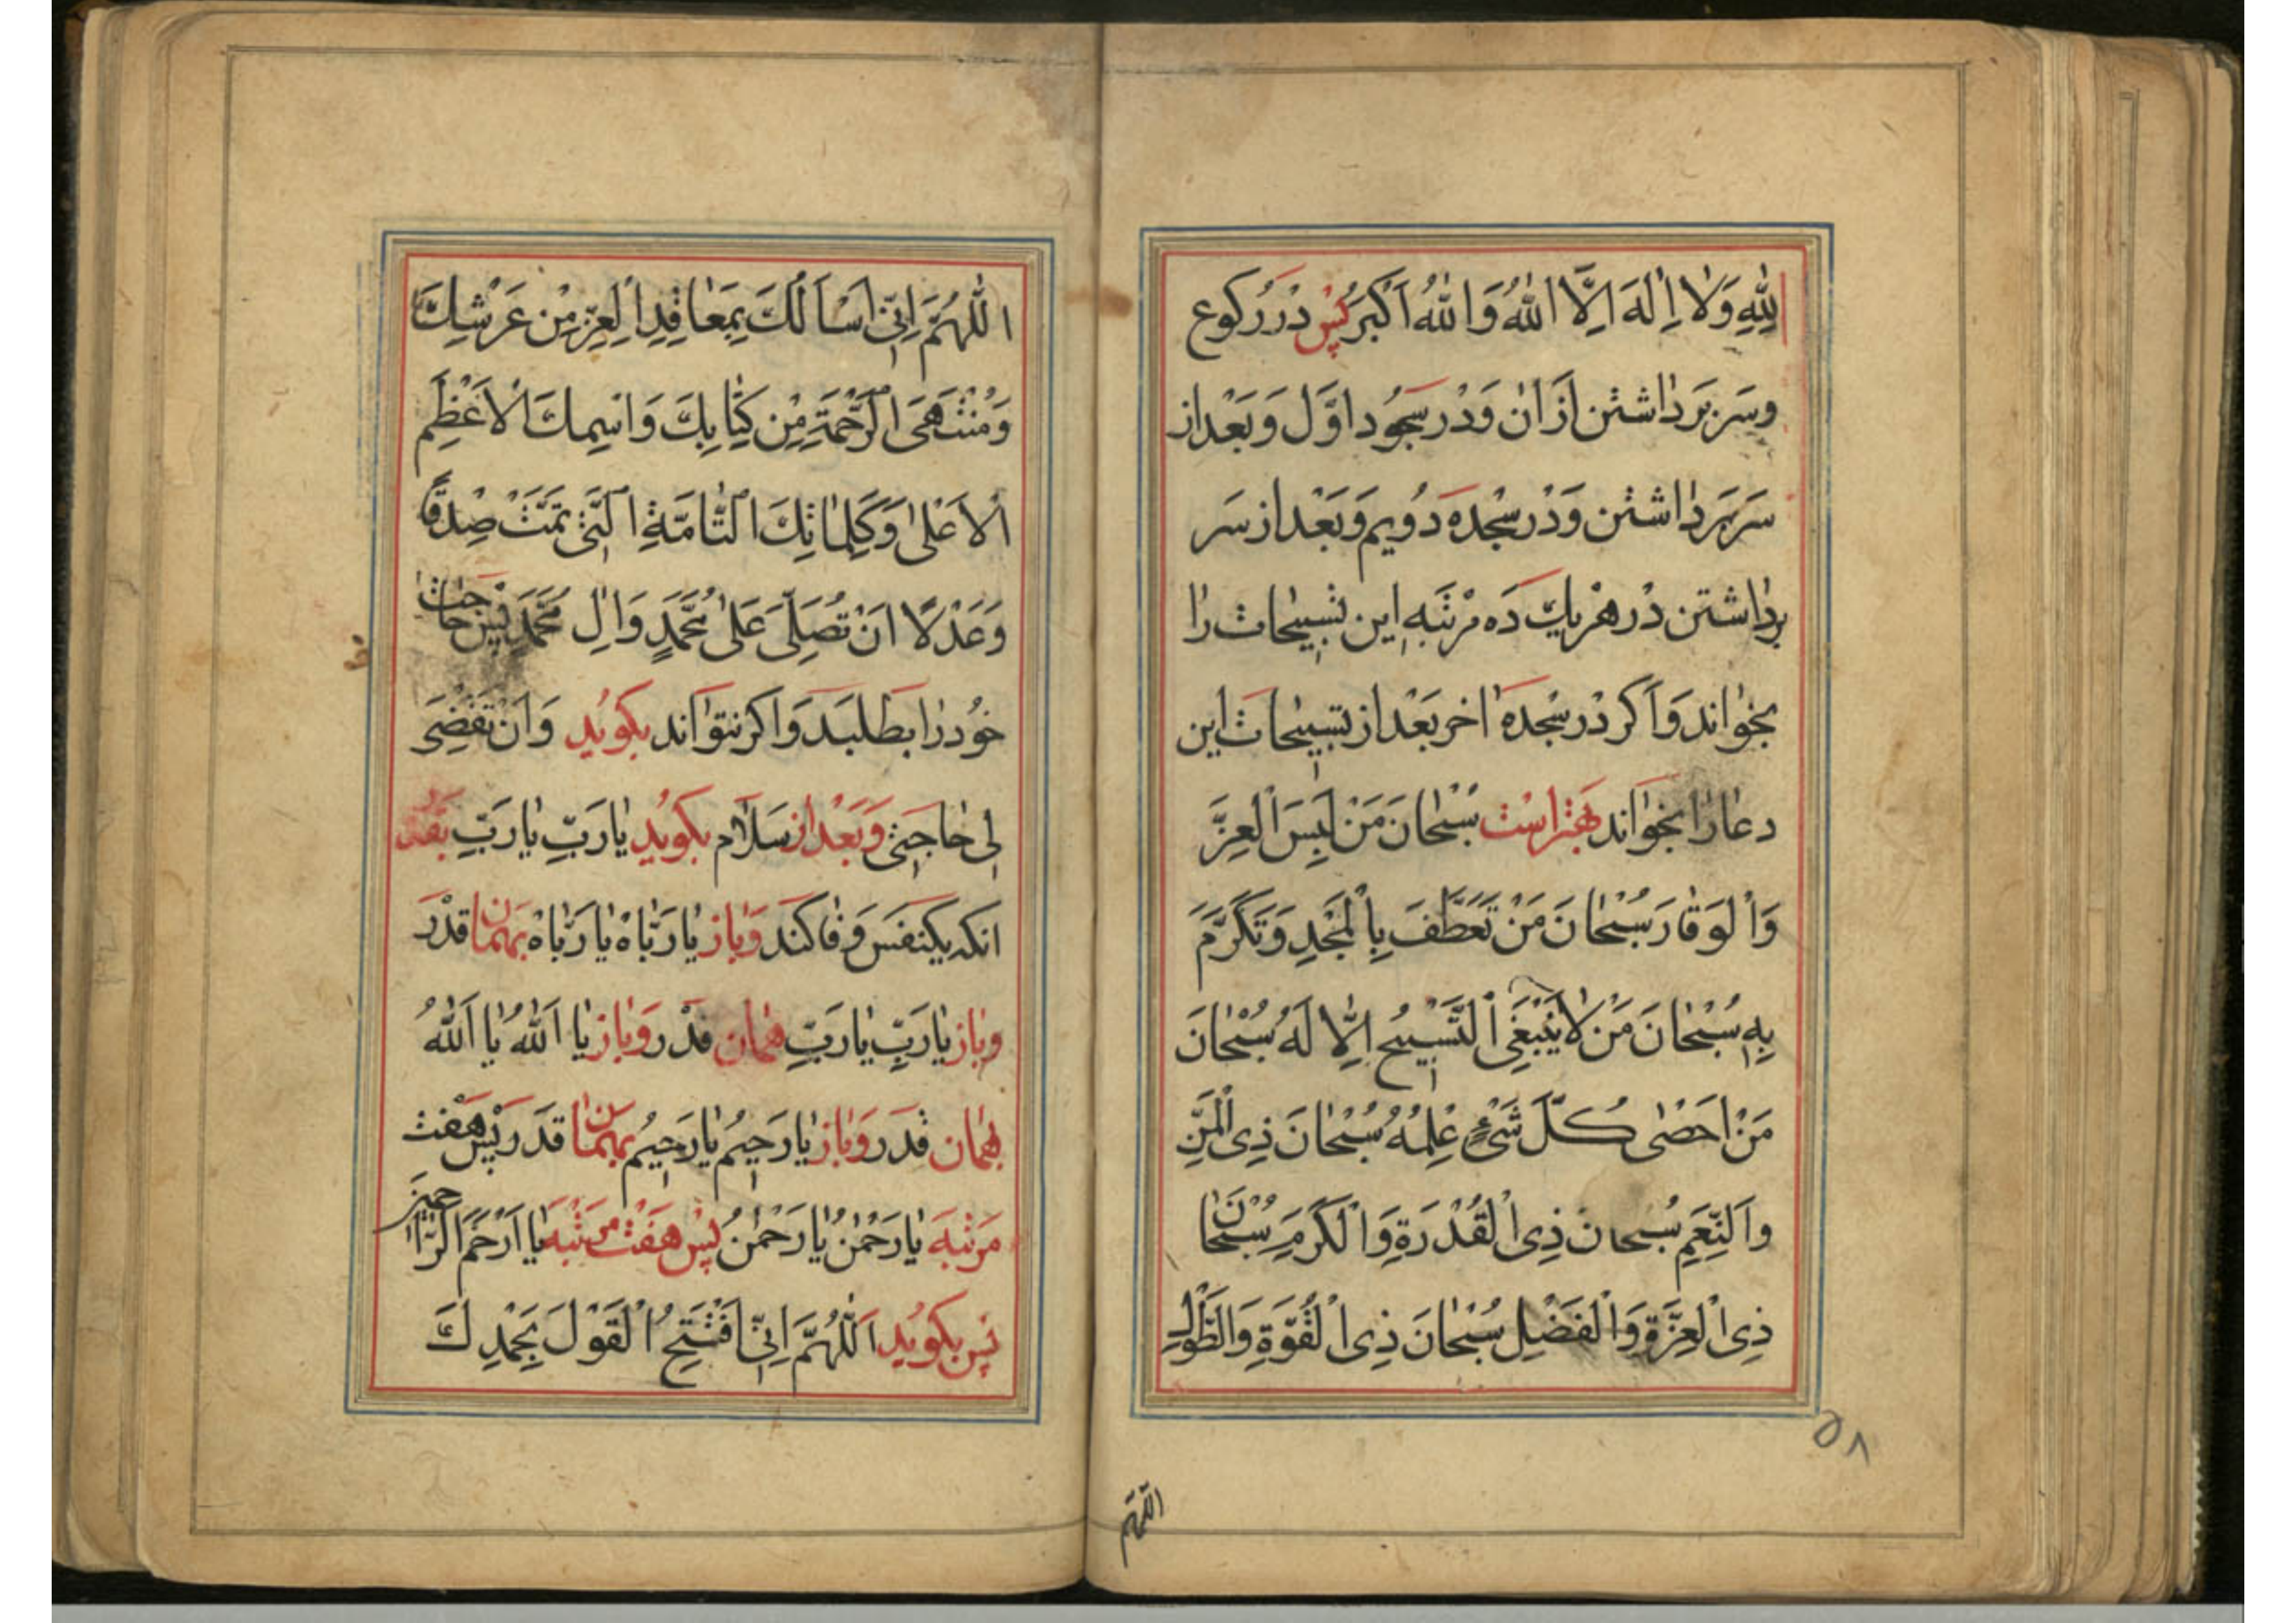 لِلّٰهِ وَلٰا اِلٰهَ اِلَّا اللّٰهُ وَاللّٰهُ اَكْبَرُ پس دَرْ رُكوع
وسَر بَر داشتن اَزْ ان وَدَرْ سَجُود اوَّل وَبَعْد از
سَر بَر داشتن وَدَرْ سجْده دُويم وَبَعْد از سَر
برداشتن دَرْ هَرْ يك دَه مرْتبَه اين تسبيحات را
بخواند وَاكر دَرْ سجْده اخر بَعْد از تسبيحات اين
دعا را بخواند بهتر اسْت سُبْحٰانَ مَنْ لَبِسَ الْعِزَّ
وَالْوَقٰارَ سُبْحٰانَ مَنْ تَعَطَّفَ بِالْمَجْدِ وَتَكَرَّمَ
بِهِ سُبْحٰانَ مَنْ لٰا يَنْبَغِى التَّسْبِيحُ اِلّٰا لَهُ سُبْحٰانَ
مَنْ اَحْصٰى كُلَّ شَىْءٍ عِلْمُهُ سُبْحٰانَ ذِى الْمَنِّ
وَالنِّعَمِ سُبحانَ ذِى الْقُدْرَةِ وَالْكَرَمِ سُبْحٰانَ
ذِى الْعِزَّةِ وَالْفَضْلِ سُبْحٰانَ ذِى الْقُوَّةِ وَالطَّوْلِ
٥٨
اللّٰهُمَّ
اَللّٰهُمَّ اِنِّى اَسْاَلُكَ بِمَعٰاقِدِ الْعِزِّ مِنْ عَرْشِكَ
وَمُنْتَهَى الرَّحْمَةِ مِنْ كِتٰابِكَ وَاسْمِكَ الْاَعْظَمِ
الْاَعْلىٰ وَكَلِمٰاتِكَ التّٰامَّةِ الَّتِى تَمَّتْ صِدْقًا
وَعَدْلًا اَنْ تُصَلِّىَ عَلىٰ مُحَمَّدٍ وَاٰلِ مُحَمَّدٍ پس حاجت
خُود را بطلبَد وَاكر نتواند بكويُد وَاَنْ تَقْضِىَ
لِى حٰاجَتِى وَبَعْد از سَلٰام بكويُد يٰا رَبِّ يٰا رَبِّ بقدر
انكه يكنفَس وَفا كنَد وَباز يٰا رَبّٰاهْ يٰا رَبّٰاهْ بهمان قدْر
وباز يٰا رَبِّ يٰا رَبِّ همان قدْر وَباز يٰا اَللّٰهُ يٰا اَللّٰهُ
بهمان قدَر وَباز يٰا رَحِيمُ يٰا رَحِيمُ بهمان قدَر پس هَفت
مَرتبَه يٰا رَحْمٰنُ يٰا رَحْمٰنُ پس هَفت مرتبَه يٰا اَرْحَمَ الرّٰاحِمِينَ
پس بكويُد اَللّٰهُمَّ اِنِّى اَفْتَتِحُ الْقَوْلَ بِحَمْدِكَ